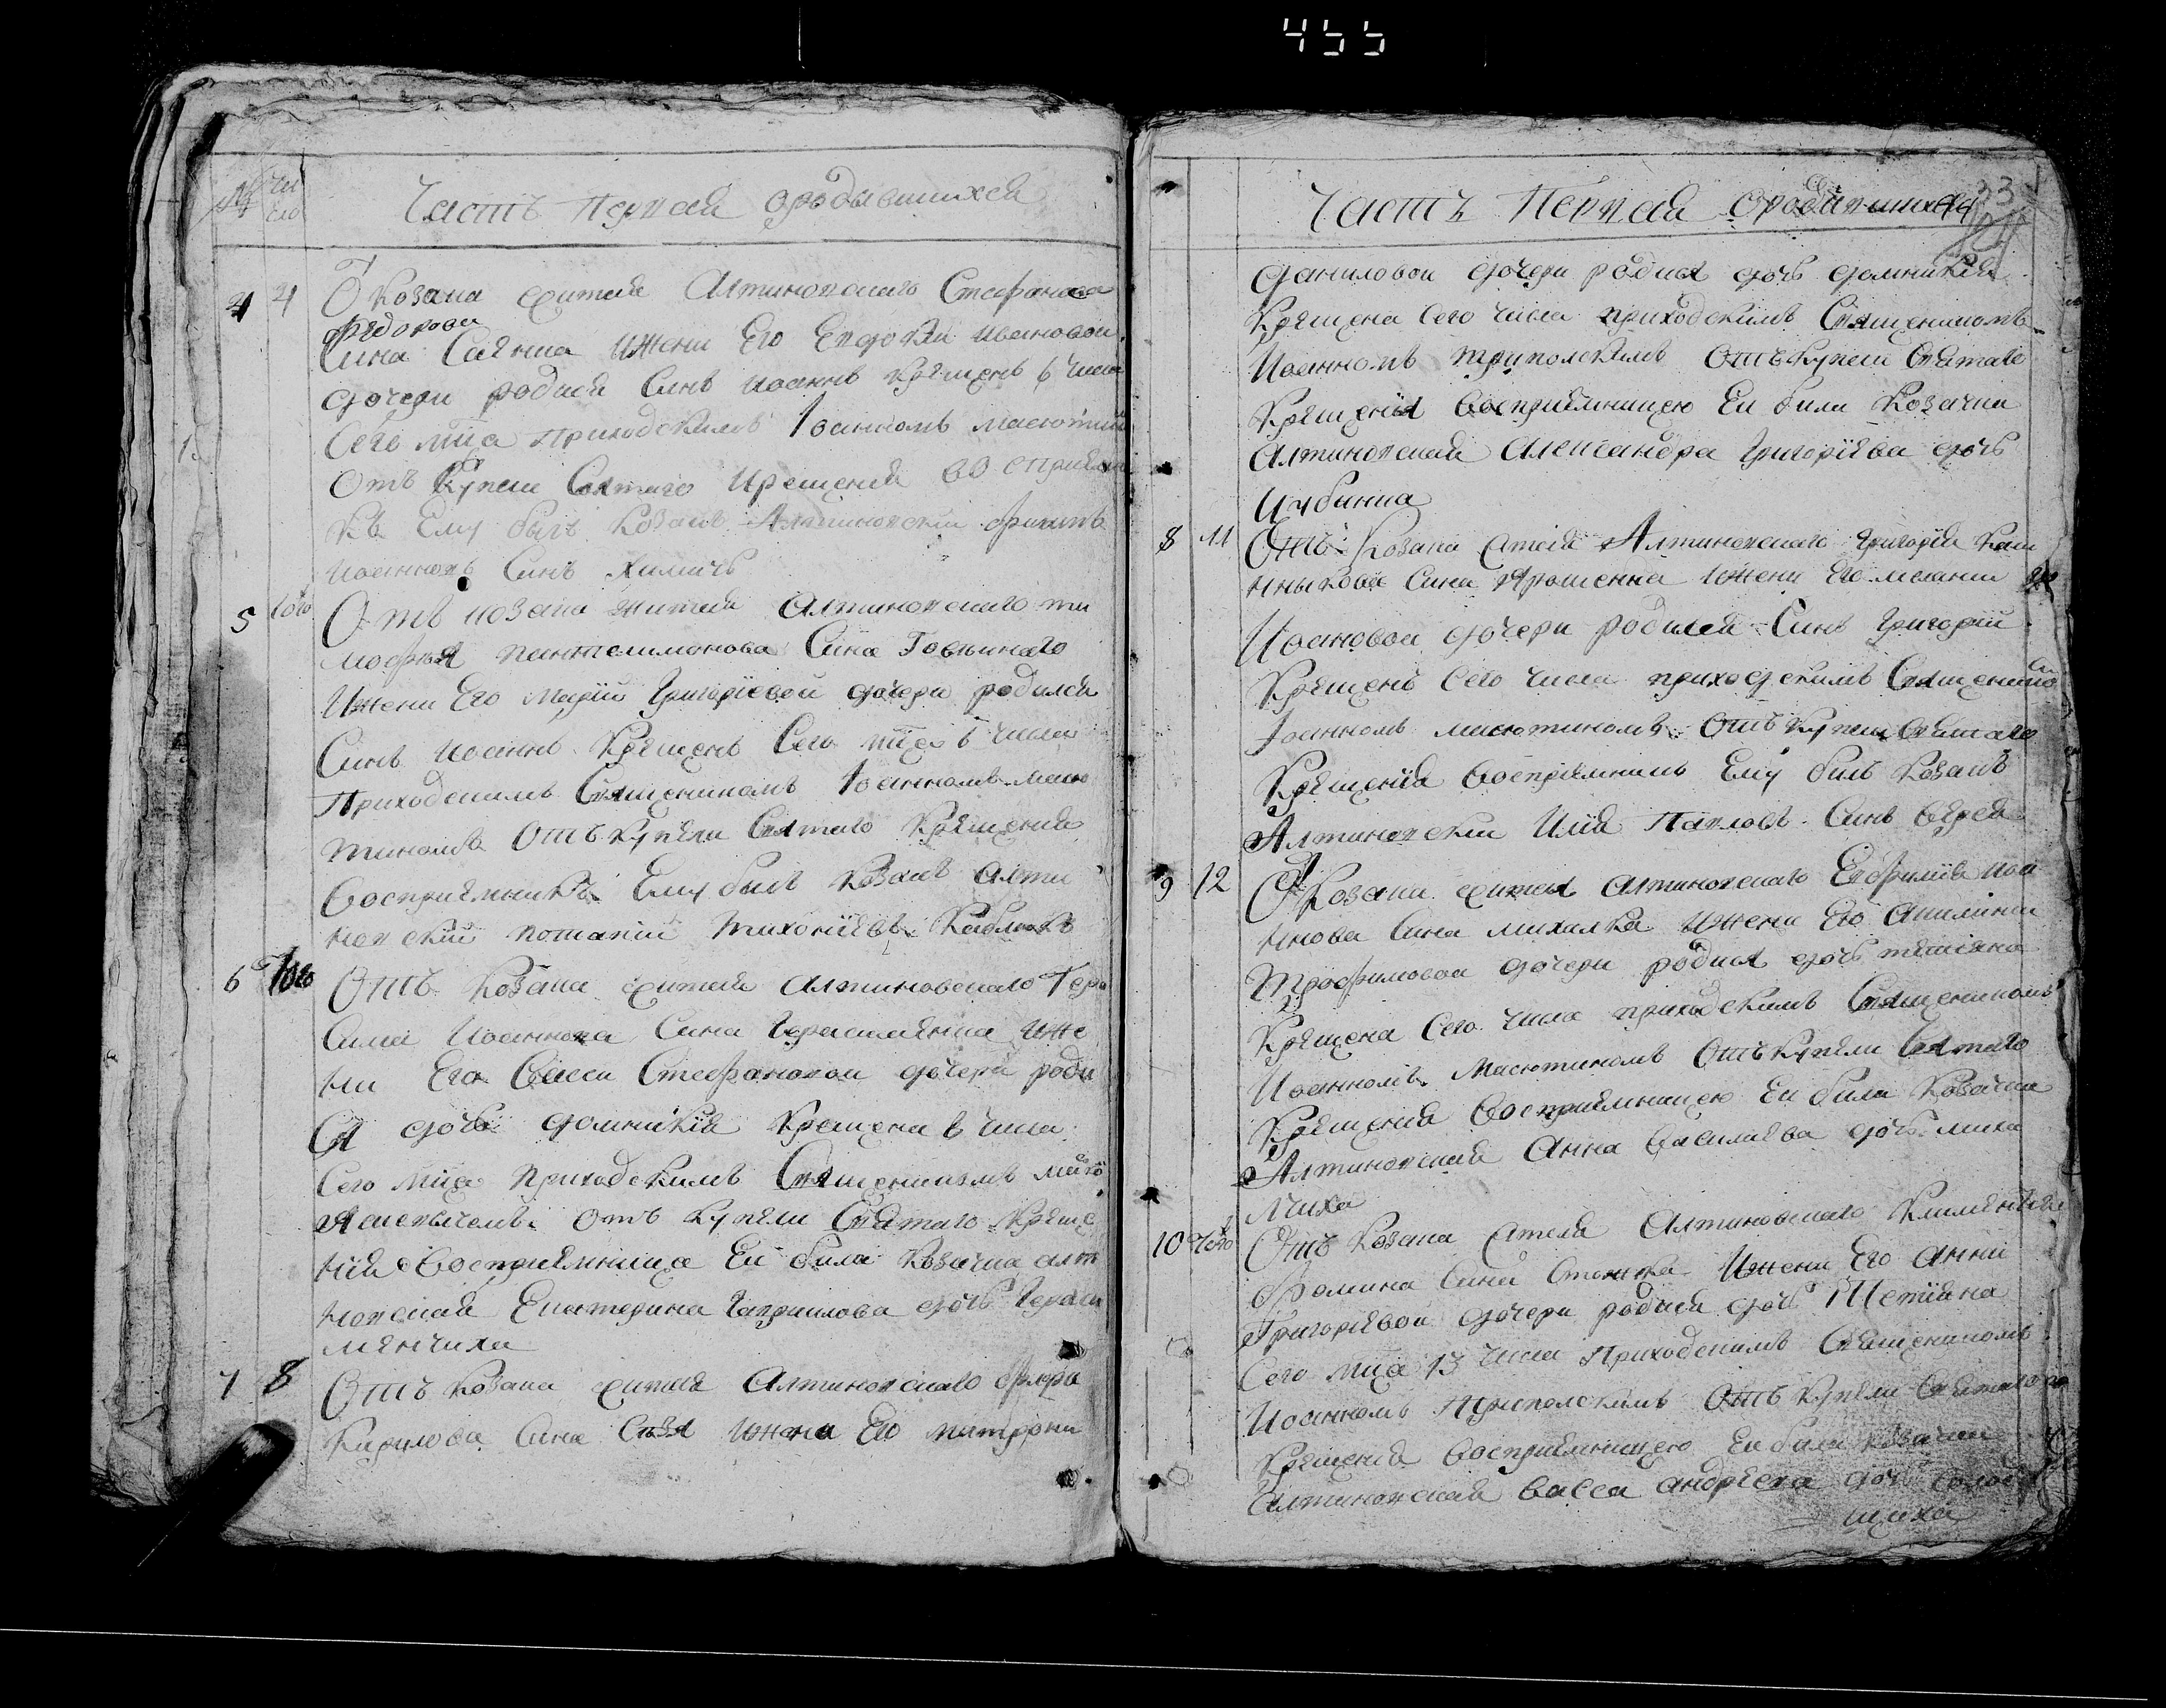 455
№ Чи
сло
Часть Первая ородывшихся
4 4 Ѿ Козака жителя Алтиновскаго Стефана
Фядорова
Сина Саенка ижени Его Евдокіи Ивановои
дочери родися Синъ Иоаннъ Крященъ 6 числа
Сего мца Приходскимъ Іоанномъ масютин
Отъ Купели Святаго Крещенія восприемни
къ Ему былъ Козакъ Алтиновскіи
Иоанновъ Синъ Химичъ
5 Того Отъ козака жителя Алтиновскаго ти
мофея пантелимонова Сина
Ижени Его Маріи Григоріевои дочери родился
Синъ Иоаннъ Крященъ Сего мца 6 числа
Приходскимъ Священикомъ Іоанномъ масю
тиномъ Отъ Купели Святаго Крященія
Восприемникъ Ему былъ Козакъ Алти
новскій потапій тихоніевъ
6 Того Отъ Козака жителя Алтиновскаго Гера
сима Иоаннова Сина Герасимянка иже
ни Его Васси Стефановои дочери роди
ся дочь домникія Крещена 6 числа
Сего мца Приходскимъ Священикомъ
Отъ Купели Святаго Креще
нія Восприемница Еи била Козачка алт
новская Екатерина Гавриилова дочь Гераси
мянчиха
7 8 Отъ Козака жителя Алтиновскаго
Кирилова Сина ижени Его матрони
33
Часть Первая ородившихся
даниловои дочери родися дочь домникія
Крящена Сего числа приходскимъ Священикомъ
Иоанномъ триполскимъ Отъ Купели Святаго
Крященія Восприемницею Еи била Козачка
Алтиновская Александра Григоріева дочь
8 11 Отъ Козака жителя Алтиновскаго Григорія
Сина Ярошенка ижени Его меланіи
Иоановои дочери родился Синъ Григорій
Крященъ Сего числа приходскимъ Священико
Іоанномъ масютиномъ Отъ Купели Святаго
Крященія Восприемникъ Ему билъ Козакъ
Алтиновскіи Илія Павловъ Синъ
9 12 Ѿ Козака жителя Алтиновскаго Евфимія Иоа
ннова Сина михалка ижени Его Акилини
Трофимовои дочери родися дочь татіана
Крящена Сего числа приходскимъ Священикомъ
Иоанномъ Масютиномъ Отъ Купели Святаго
Крященія Восприемницею Еи била Козачка
Алтиновская Анна Василіева дочь миха
лчиха
10 Того Отъ Козака жителя Алтиновскаго Климентія
Фомина Сина ижени Его Анни
Григоріевои дочери родися дочь
Сего мца 13 числа Приходскимъ Священикомъ
Иоанномъ Триполскимъ Отъ Купели Святаго
Крященія Восприемницею Еи била Козачка
Алтиновская Васса андріева дочь